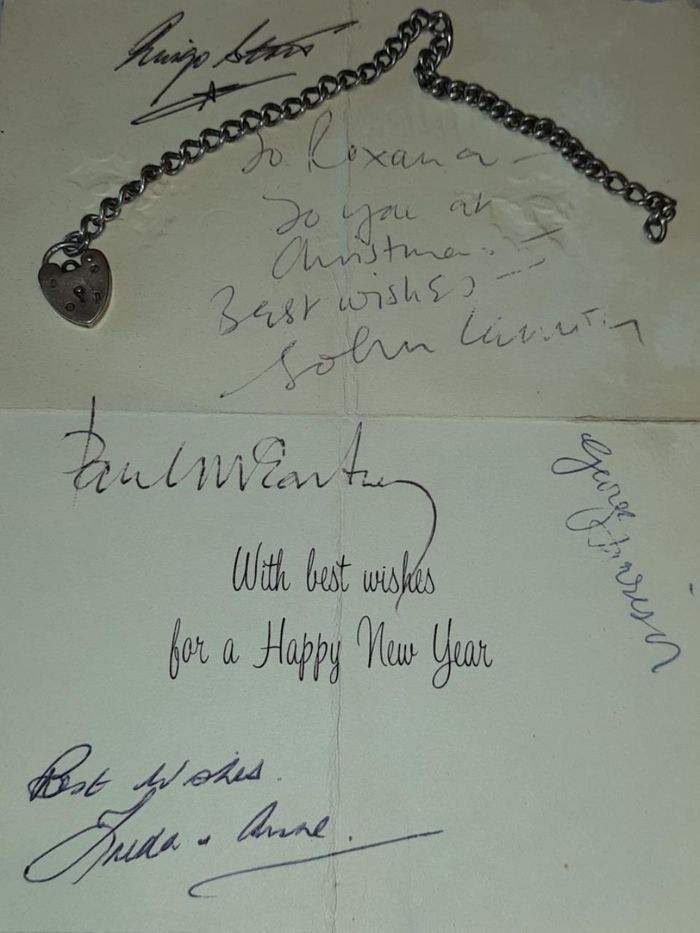 Ringo Starr
To Roxana -
To you at
Christmas
Best wishes
John Lennon
Paul McCartney
George Harrison
With best wishes
for a Happy New Year
Best Wishes.
Freda + Anne.